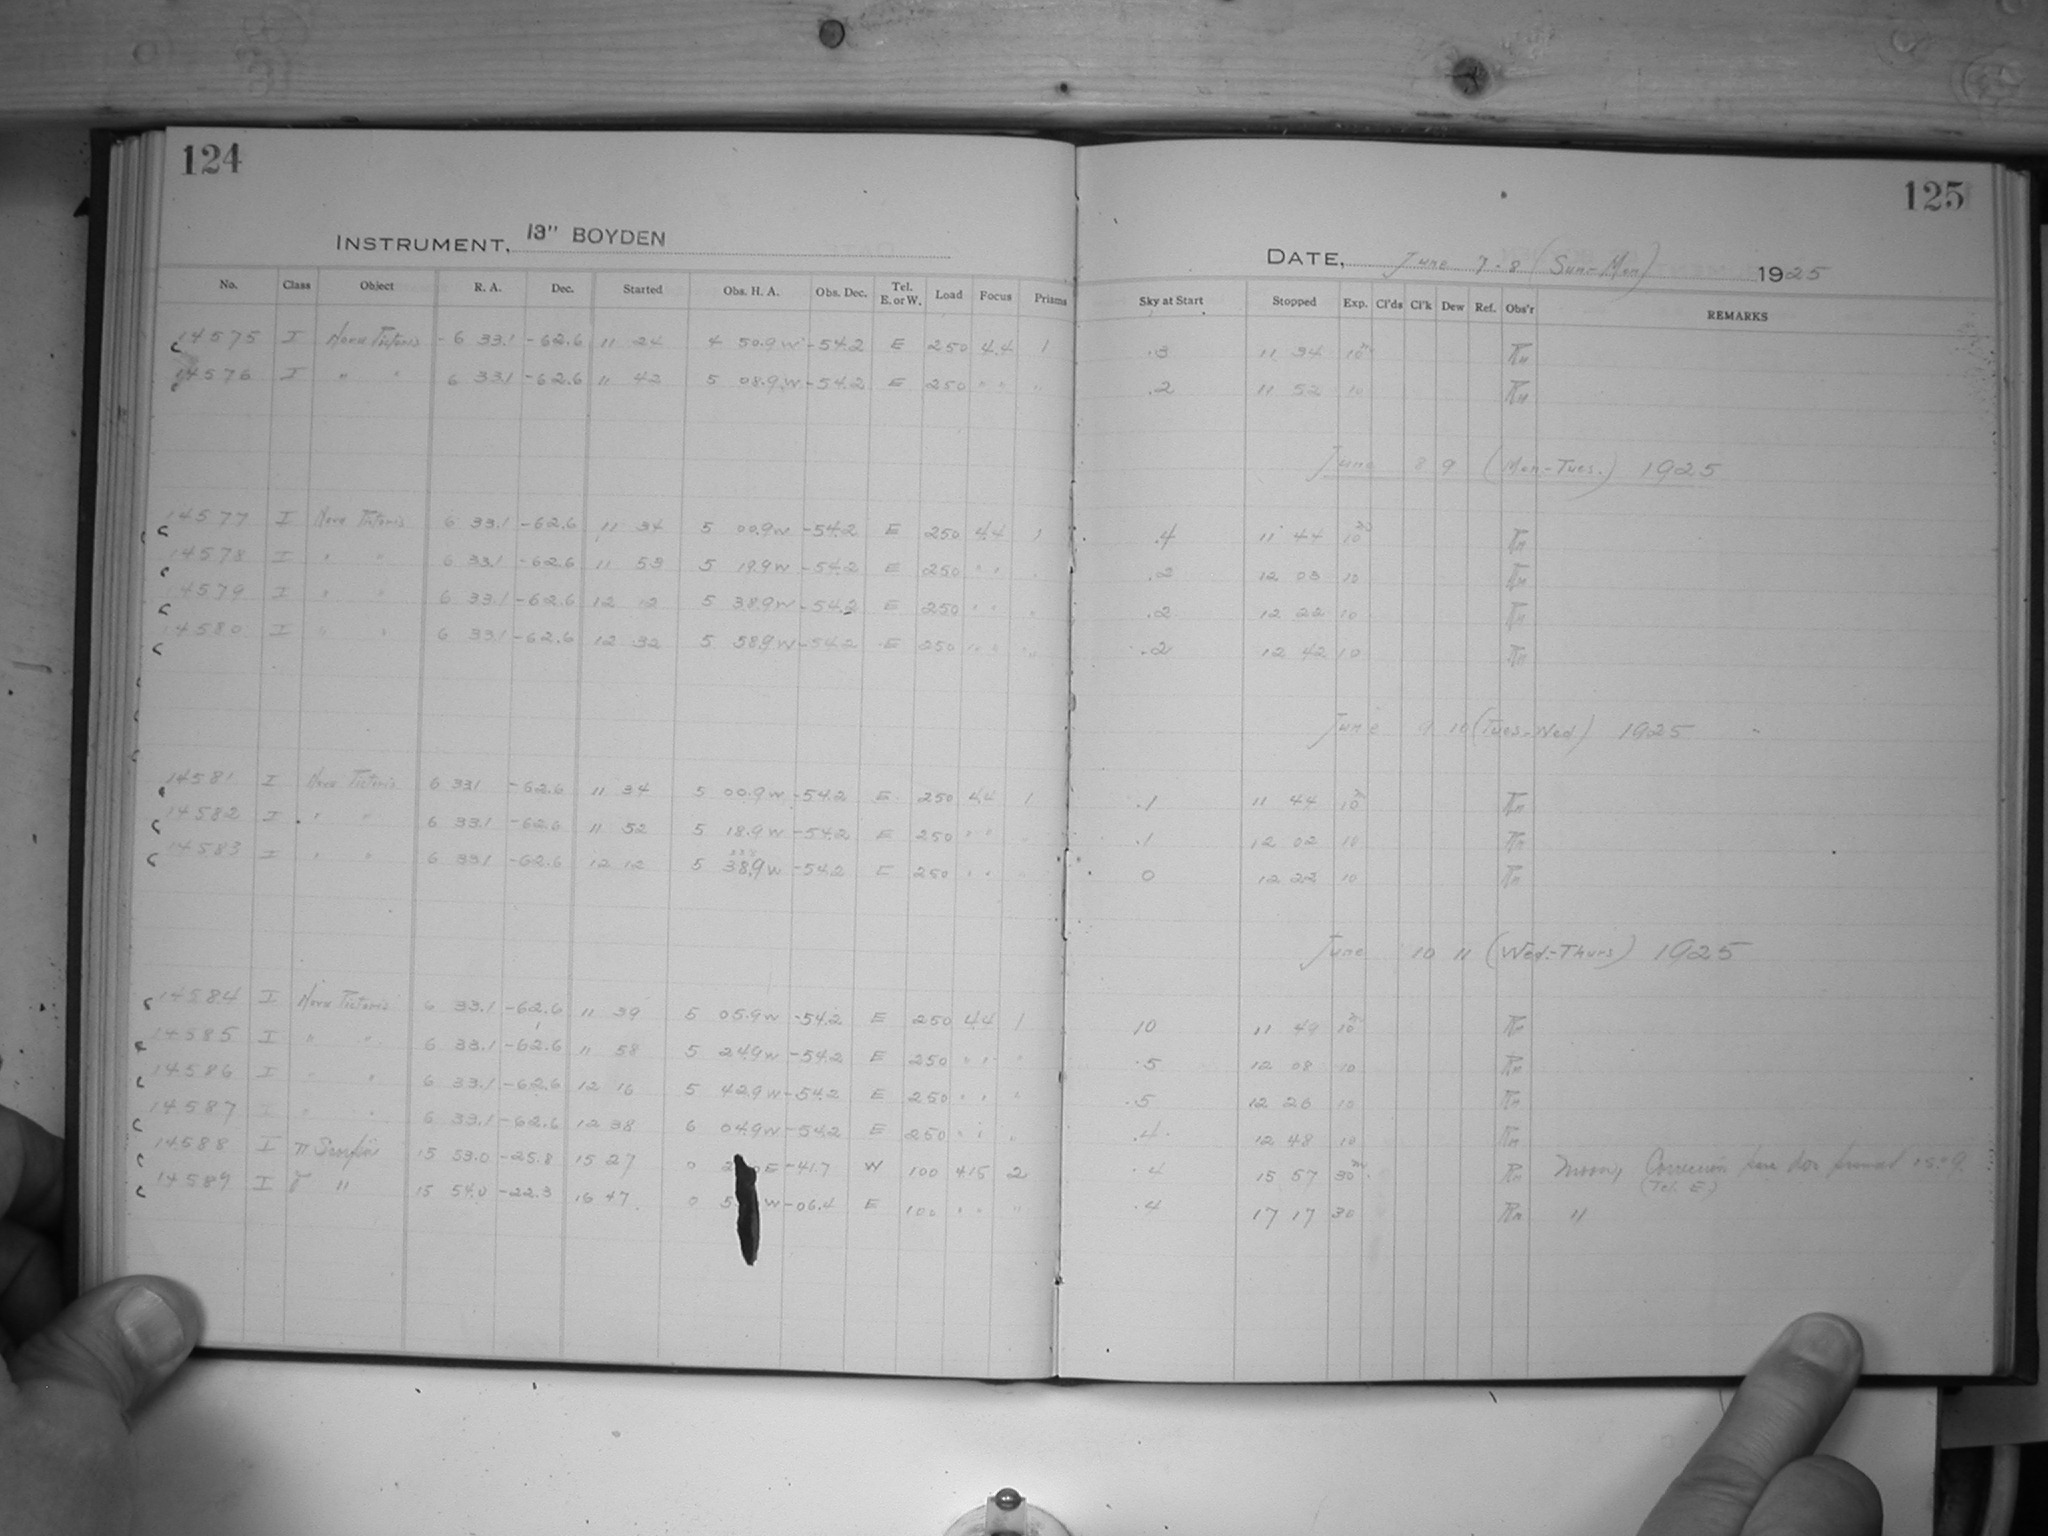 124
125
INSTRUMENT, 13" BOYDEN
DATE, June 7-8 (Sun-Mon) 1925
No. Class Object R. A. Dec. Started Obs. H. A. Obs. Dec. Tel. E. or W. Load Focus Prisms Sky at Start Stopped Exp. Cl'ds Cl'k Dew Ref. Obs'r REMARKS
14575 I Nova Pictoris - 6 33.1 -62.6 11 24 4 50.9 W -54.2 E 250 4.4 1 .3 11 34 10m
14576 I " " 6 33.1 -62.6 11 42 5 08.9 W -54.2 E 250 " " " .2 11 52 10
June 8 9 (Mon-Tues.) 1925
14577 I Nova Pictoris 6 33.1 -62.6 11 34 5 00.9 W -54.2 E 250 4.4 1 .4 11 44 10
14578 I " " 6 33.1 -62.6 11 53 5 19.9 W -54.2 E 250 " " .2 12 03 10
14579 I " " 6 33.1 -62.6 12 12 5 38.9 W -54.2 E 250 " " " .2 12 22 10
14580 I " " 6 33.1 -62.6 12 32 5 58.9 W -54.2 E 250 " " " .2 12 42 10
June 9 10 (Tues-Wed) 1925
14581 I Nova Pictoris 6 33.1 -62.6 11 34 5 00.9 W -54.2 E 250 4.4 1 .1 11 44 10m
14582 I " " 6 33.1 -62.6 11 52 5 18.9 W -54.2 E 250 " " .1 12 02 10
14583 I " " 6 33.1 -62.6 12 12 5 38.9 W -54.2 E 250 " " " 0 12 22 10
June 10 11 (Wed.-Thurs) 1925
14584 I Nova Pictoris 6 33.1 -62.6 11 39 5 05.9 W -54.2 E 250 4.4 1 10 11 49 10m
14585 I " " 6 33.1 -62.6 11 58 5 24.9 W -54.2 E 250 " " " .5 12 08 10
14586 I " " 6 33.1 -62.6 12 16 5 42.9 W -54.2 E 250 " " " .5 12 26 10
14587 I " " 6 33.1 -62.6 12 38 6 04.9 W -54.2 E 250 " " " .4 12 48 10
14588 I π Scorpii 15 53.0 -25.8 15 27 0 E -41.7 W 100 4.15 2 .4 15 57 30m Moon
14589 I " 15 54.0 -22.3 16 47 0 W -06.4 E 100 " " " .4 17 17 30 "
(Tel. E)